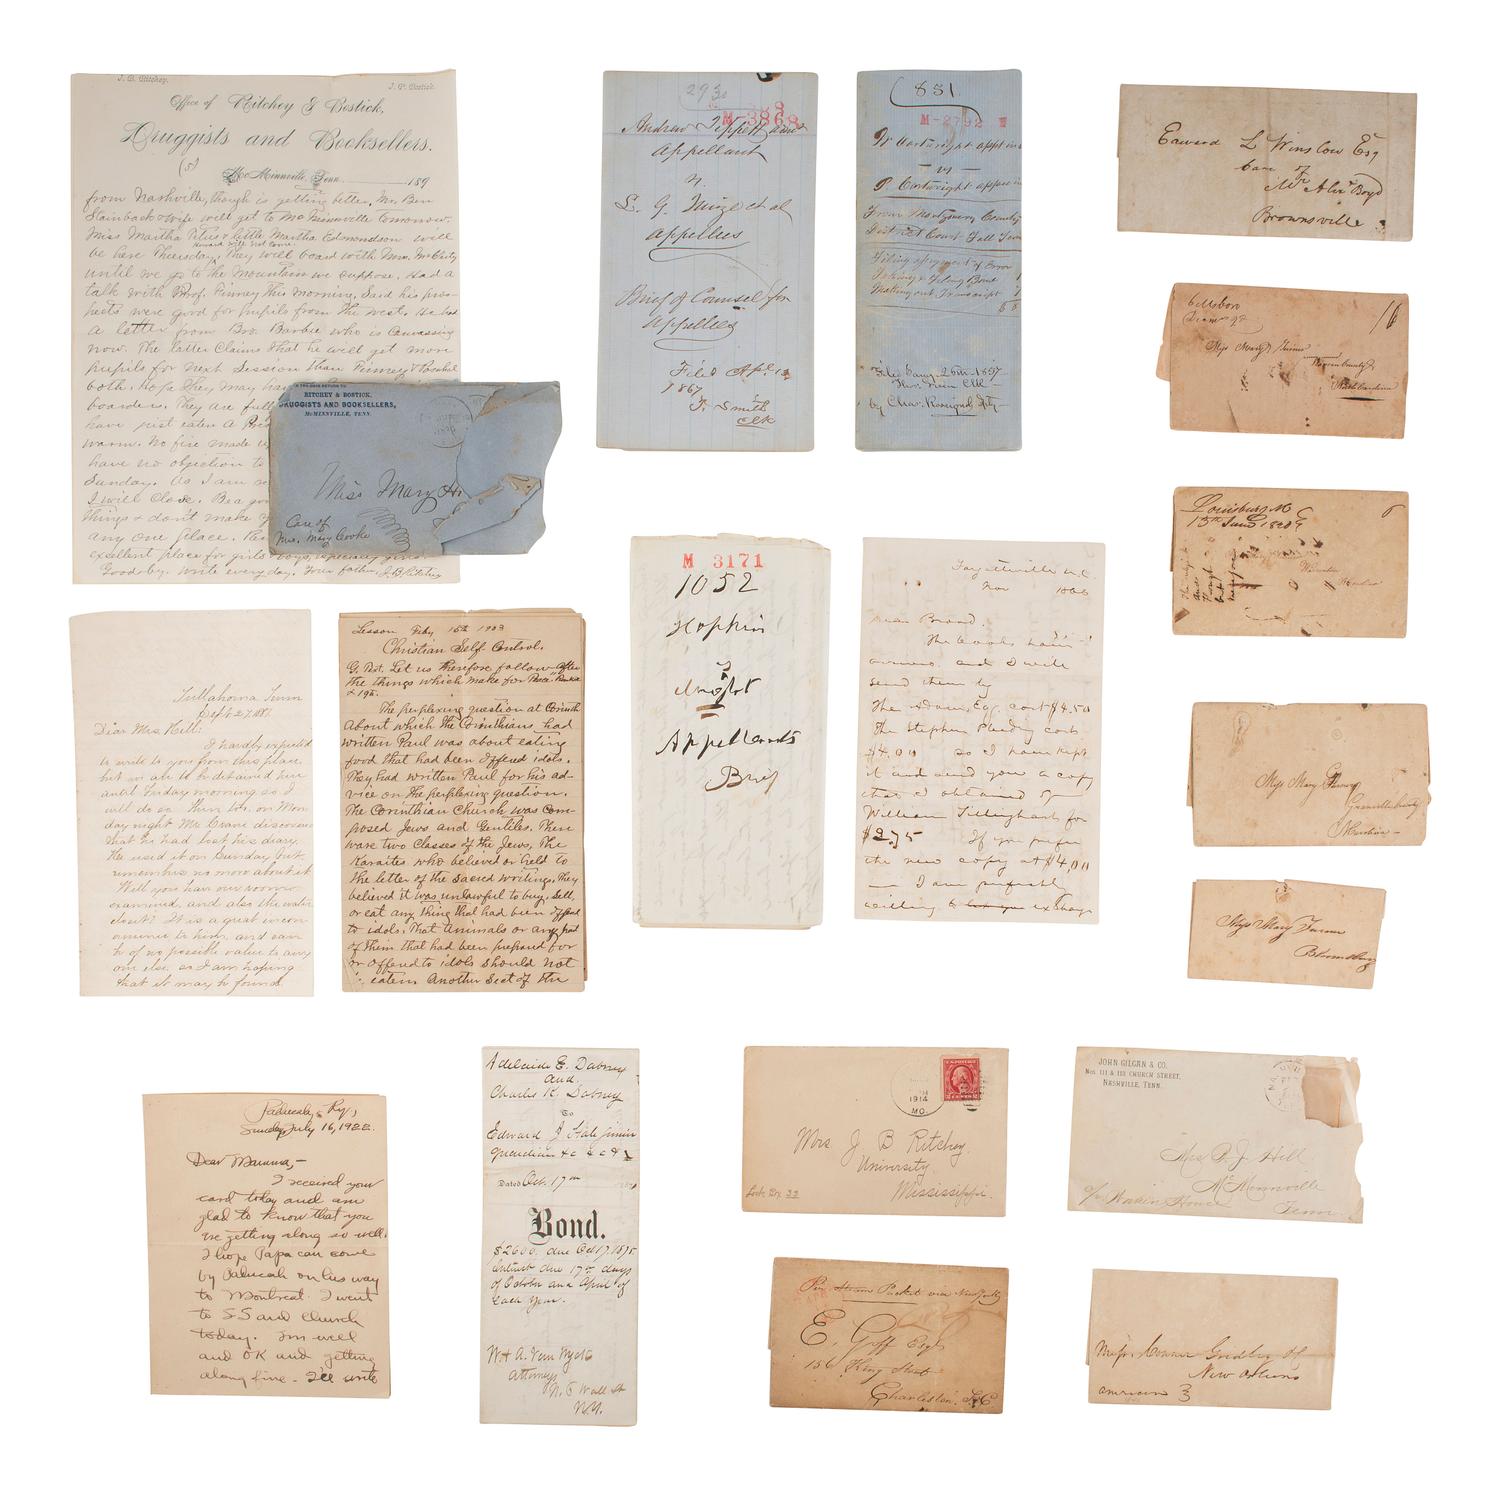 J. B. Ritchey.
J. P. Bostick.
Office of Ritchey & Bostick,
Druggists and Booksellers.
(5)
McMinnville, Tenn. 189
from Nashville, though is getting better. Mr. Ben
Stainback & wife will get to McMinnville tomorrow.
Miss Martha Pitus & little Martha Edmondson will
Howard will not come.
be here Thursday. They will board with Mrs. McCarty
until we go to the Mountain we suppose. Had a
talk with Prof. Finney this morning. Said his pros-
pects were good for pupils from the west. He had
a letter from Bro. Barbie who is canvassing
now. The latter claims that he will get more
pupils for next Session than Finney &
both. Hope they may ha
boarders. They are full
have just eaten a
warm. No fire made
have no objection to
Sunday. As I am
I will close. Be a goo
things & don't make
any one place.
excellent place for girls & boys, especially girls.
Good-by. Write every day. Your father, J B Ritchey
RETURN TO
RITCHEY & BOSTICK,
DRUGGISTS AND BOOKSELLERS,
McMINNVILLE, TENN.
Miss Mary
Care of
Mrs. Mary Cooke
293
M-3868
Andrew Tippett
Appellant
v.
L. G. Mize et al
Appellees
Brief of Counsel for
Appellees
Filed Apl. 12
1867
T. Smith
Clk
851
M-2792
W Cartwright appt
vs
P. Cartwright appee
From Montgomery County
District Court Fall Term
Filing assignment of Error
Taking & filing Bond
Making out Transcript
Filed Aug 26th 1857
Thos Green Clk
by Chas. Rossignol Dty
Edward L Winslow Esq
Care of
Mr Alex Boyd
Brownsville
Hillsboro
16
Miss Mary Turner
Warren County
North Carolina
Louisburg N C
13th June 1829
6
Carolina
Miss Mary
Granville County
N Carolina
Miss Mary Turner
Bloomsbury
Tullahoma Tenn
Sept. 27, 188
Dear Mrs Hill:
I hardly expected
to write to you from this place,
but we are to be detained here
until Tuesday morning so I
will do so then too. on Mon-
day night Mr. Crane discovered
that he had lost his diary.
He used it on Sunday but
remembers no more about it
Will you have our room
examined, and also the water
closet? It is a great incon-
venience to him, and can
be of no possible value to any
one else, so I am hoping
that it may be found.
Lesson Feby 15th 1903
Christian Self Control.
G. Text. Let us therefore follow after
the things which make for Peace"
& 19v.
The perplexing question at Corinth
about which the Corinthians had
written Paul was about eating
food that had been offered idols.
They had written Paul for his ad-
vice on the perplexing question.
The Corinthian Church was com-
posed Jews and Gentiles. There
ware two Classes of the Jews, The
Karaites who believed or held to
the letter of the sacred writings. They
believed it was unlawful to buy, sell,
or eat any thing that had been offered
to idols. That animals or any part
of them that had been prepared for
or offered to idols should not
eaten. Another Sect of the
M 3171
1052
Hopkin
v
Wright
Appellants
Brief
Fayetteville N.C.
Nov 1866
Dear Broad,
The books have
and I will
send them by
The Adams Eq. cost $4.50
The Stephen Pleadg cost
$4.00 so I have kept
it and send you a copy
that I obtained of
William Tillinghast for
$2.75 If you prefer
the new copy at $4.00
— I am perfectly
willing to exchange
Paducah, Ky,
Sunday, July 16, 1922.
Dear Mamma,-
I received your
card today and am
glad to know that you
are getting along so well.
I hope Papa can come
by Paducah on his way
to Montreat. I went
to S S and church
today. I'm well
and OK and getting
along fine. I'll write
Adelaide E. Dabney
and
Charles K. Dabney
to
Edward J Hale Junior
guardian &c &c &c
Dated Oct. 17th 187
Bond.
$2600. due Oct 17. 1875
Interest due 17th days
of October and April of
each year.
W. & A. Van Wyck
Attorneys
No 5 Wall St
N.Y.
1914
MO.
U.S. POSTAGE
2 CENTS 2
Mrs J B Ritchey
University,
Mississippi.
Lock Box 33
JOHN GILGAN & CO.
Nos 111 & 113 CHURCH STREET,
NASHVILLE, TENN.
Mrs P. J. Hill
McMinnville
c/o Warren House
Tenn.
Per Steam Packet via New York
E. Goff Esqr
156 King Street
Charleston. S.C
Messrs. Conner Gridley & Co
New Orleans
american 3